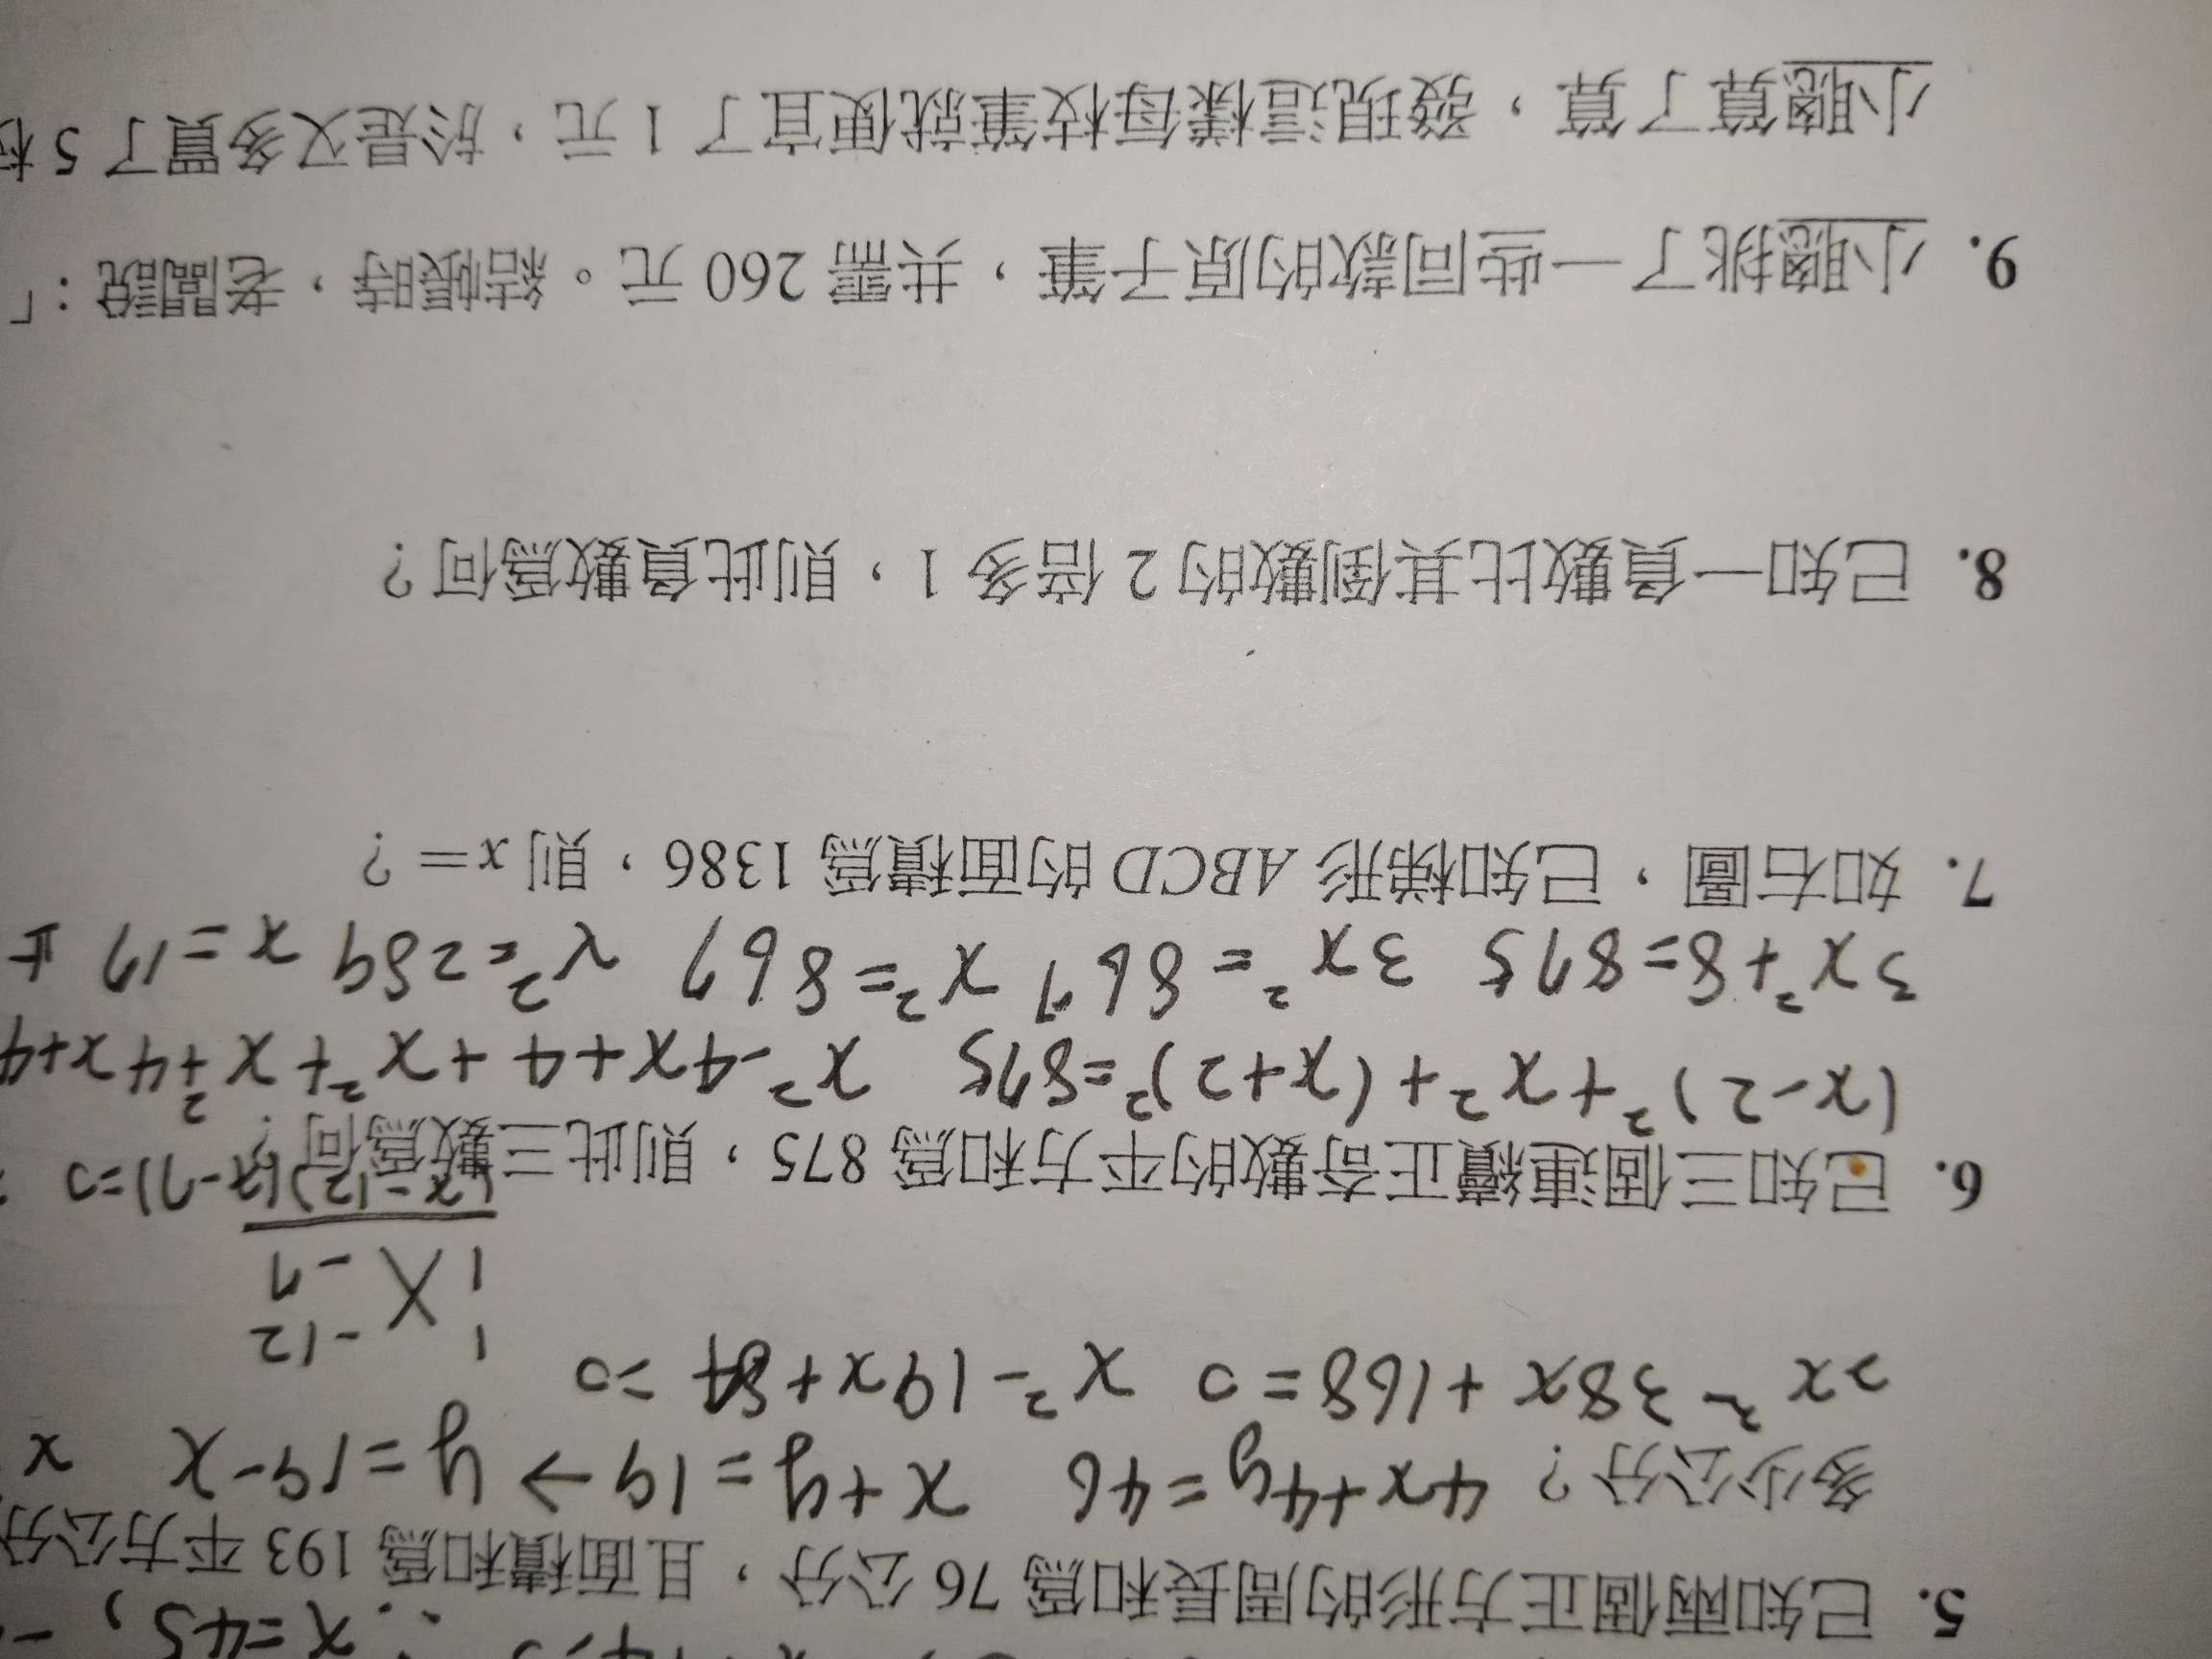 ∴ x=45, -
5. 已知兩個正方形的周長和為 76 公分，且面積和為 193 平方公分
多少公分？ 4x+4y=46 x+y=19→y=19-x x
2x²-38x+168=0 x²-19x+84=0
1 -12
1 X -7
(x-12)(x-7)=0
6. 已知三個連續正奇數的平方和為 875，則此三數為何？
(x-2)²+x²+(x+2)²=875 x²-4x+4+x²+x²+4x+4
3x²+8=875 3x²=867 x²=867 x²=289 x=17 正
7. 如右圖，已知梯形 ABCD 的面積為 1386，則 x=？
8. 已知一負數比其倒數的 2 倍多 1，則此負數為何？
9. 小聰挑了一些同款的原子筆，共需 260 元。結帳時，老闆說：「
小聰算了算，發現這樣每枝筆就便宜了 1 元，於是又多買了 5 枝